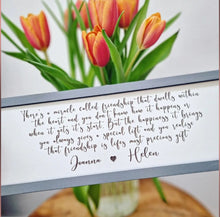 There's a miracle called friendship that dwells within
the heart and you don't know how it happens or
when it gets it's start. But the happiness it brings
you always gives a special lift and you realise
that friendship is life's most precious gift
Joanna ♥ Helen